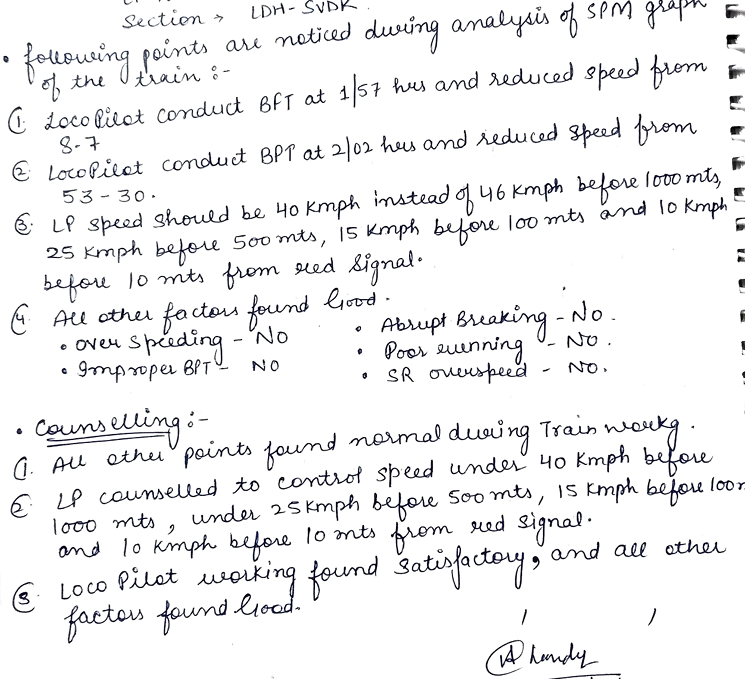 Section → LDH-SVDK
• following points are noticed during analysis of SPM graph
of the train :-
① Loco Pilot conduct BFT at 1/57 hrs and reduced speed from
8-7
② Loco Pilot conduct BPT at 2/02 hrs and reduced speed from
53-30.
③ LP speed should be 40 Kmph instead of 46 Kmph before 1000 mts,
25 Kmph before 500 mts, 15 Kmph before 100 mts and 10 Kmph
before 10 mts from red signal.
④ All other factors found Good.
• over speeding - NO
• Abrupt Breaking - No.
• Improper BPT - NO
• Poor running - NO.
• SR overspeed - NO.
• Counselling :-
①. All other points found normal during Train workg.
② LP counselled to control speed under 40 Kmph before
1000 mts, under 25 Kmph before 500 mts, 15 Kmph before 100 m
and 10 Kmph before 10 mts from red signal.
③ Loco Pilot working found satisfactory, and all other
factors found Good.